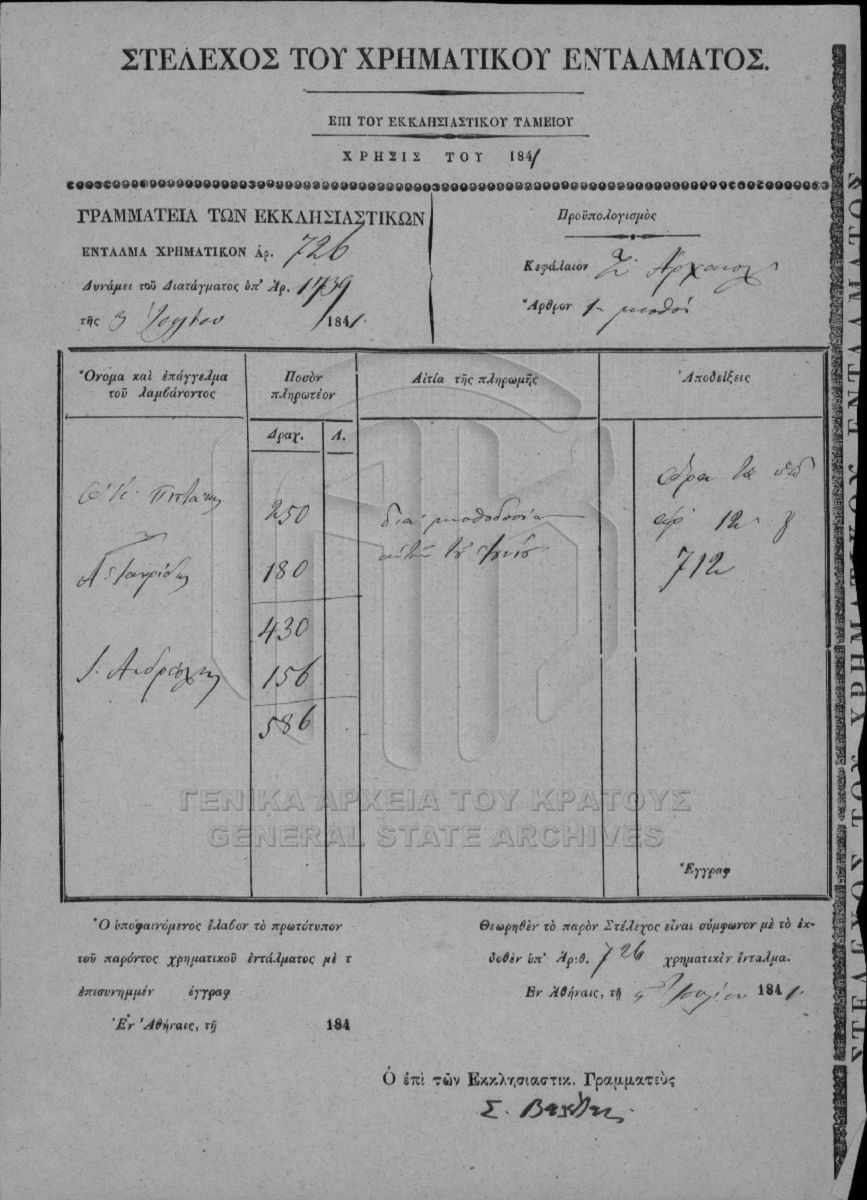 ΣΤΕΛΕΧΟΣ ΤΟΥ ΧΡΗΜΑΤΙΚΟΥ ΕΝΤΑΛΜΑΤΟΣ.
ΕΠΙ ΤΟΥ ΕΚΚΛΗΣΙΑΣΤΙΚΟΥ ΤΑΜΕΙΟΥ
ΧΡΗΣΙΣ ΤΟΥ 1841
ΓΡΑΜΜΑΤΕΙΑ ΤΩΝ ΕΚΚΛΗΣΙΑΣΤΙΚΩΝ
ΕΝΤΑΛΜΑ ΧΡΗΜΑΤΙΚΟΝ Ἀρ. 726
Δυνάμει τοῦ Διατάγματος ὑπ' Ἀρ.
τῆς 3 Ἰουλίου 1841.
Προϋπολογισμὸς
Κεφάλαιον Ζ
Ἄρθρον 1 μισθοί
Ὄνομα καὶ ἐπάγγελμα
τοῦ λαμβάνοντος
Ποσὸν
πληρωτέον
Αἰτία τῆς πληρωμῆς
Ἀποδείξεις
Δραχ. Λ.
Πιττάκης 250
180
430
156
586
διὰ μισθοδοσίαν
ὑπ' 12
712
ΓΕΝΙΚΑ ΑΡΧΕΙΑ ΤΟΥ ΚΡΑΤΟΥΣ
GENERAL STATE ARCHIVES
Ἔγγραφ
Ὁ ὑποφαινόμενος ἔλαβον τὸ πρωτότυπον
τοῦ παρόντος χρηματικοῦ ἐντάλματος μὲ τ
ἐπισυνημμέν ἔγγραφ
Ἐν Ἀθήναις, τῇ 184
Θεωρηθὲν τὸ παρὸν Στέλεχος εἶναι σύμφωνον μὲ τὸ ἐκ-
δοθὲν ὑπ' Ἀριθ. 726 χρηματικὸν ἔνταλμα.
Ἐν Ἀθήναις, τῇ 5 Ἰουλίου 1841.
Ὁ ἐπὶ τῶν Ἐκκλησιαστικ. Γραμματεὺς
ΣΤΕΛΕΧΟΣ ΤΟΥ ΧΡΗΜΑΤΙΚΟΥ ΕΝΤΑΛΜΑΤΟΣ